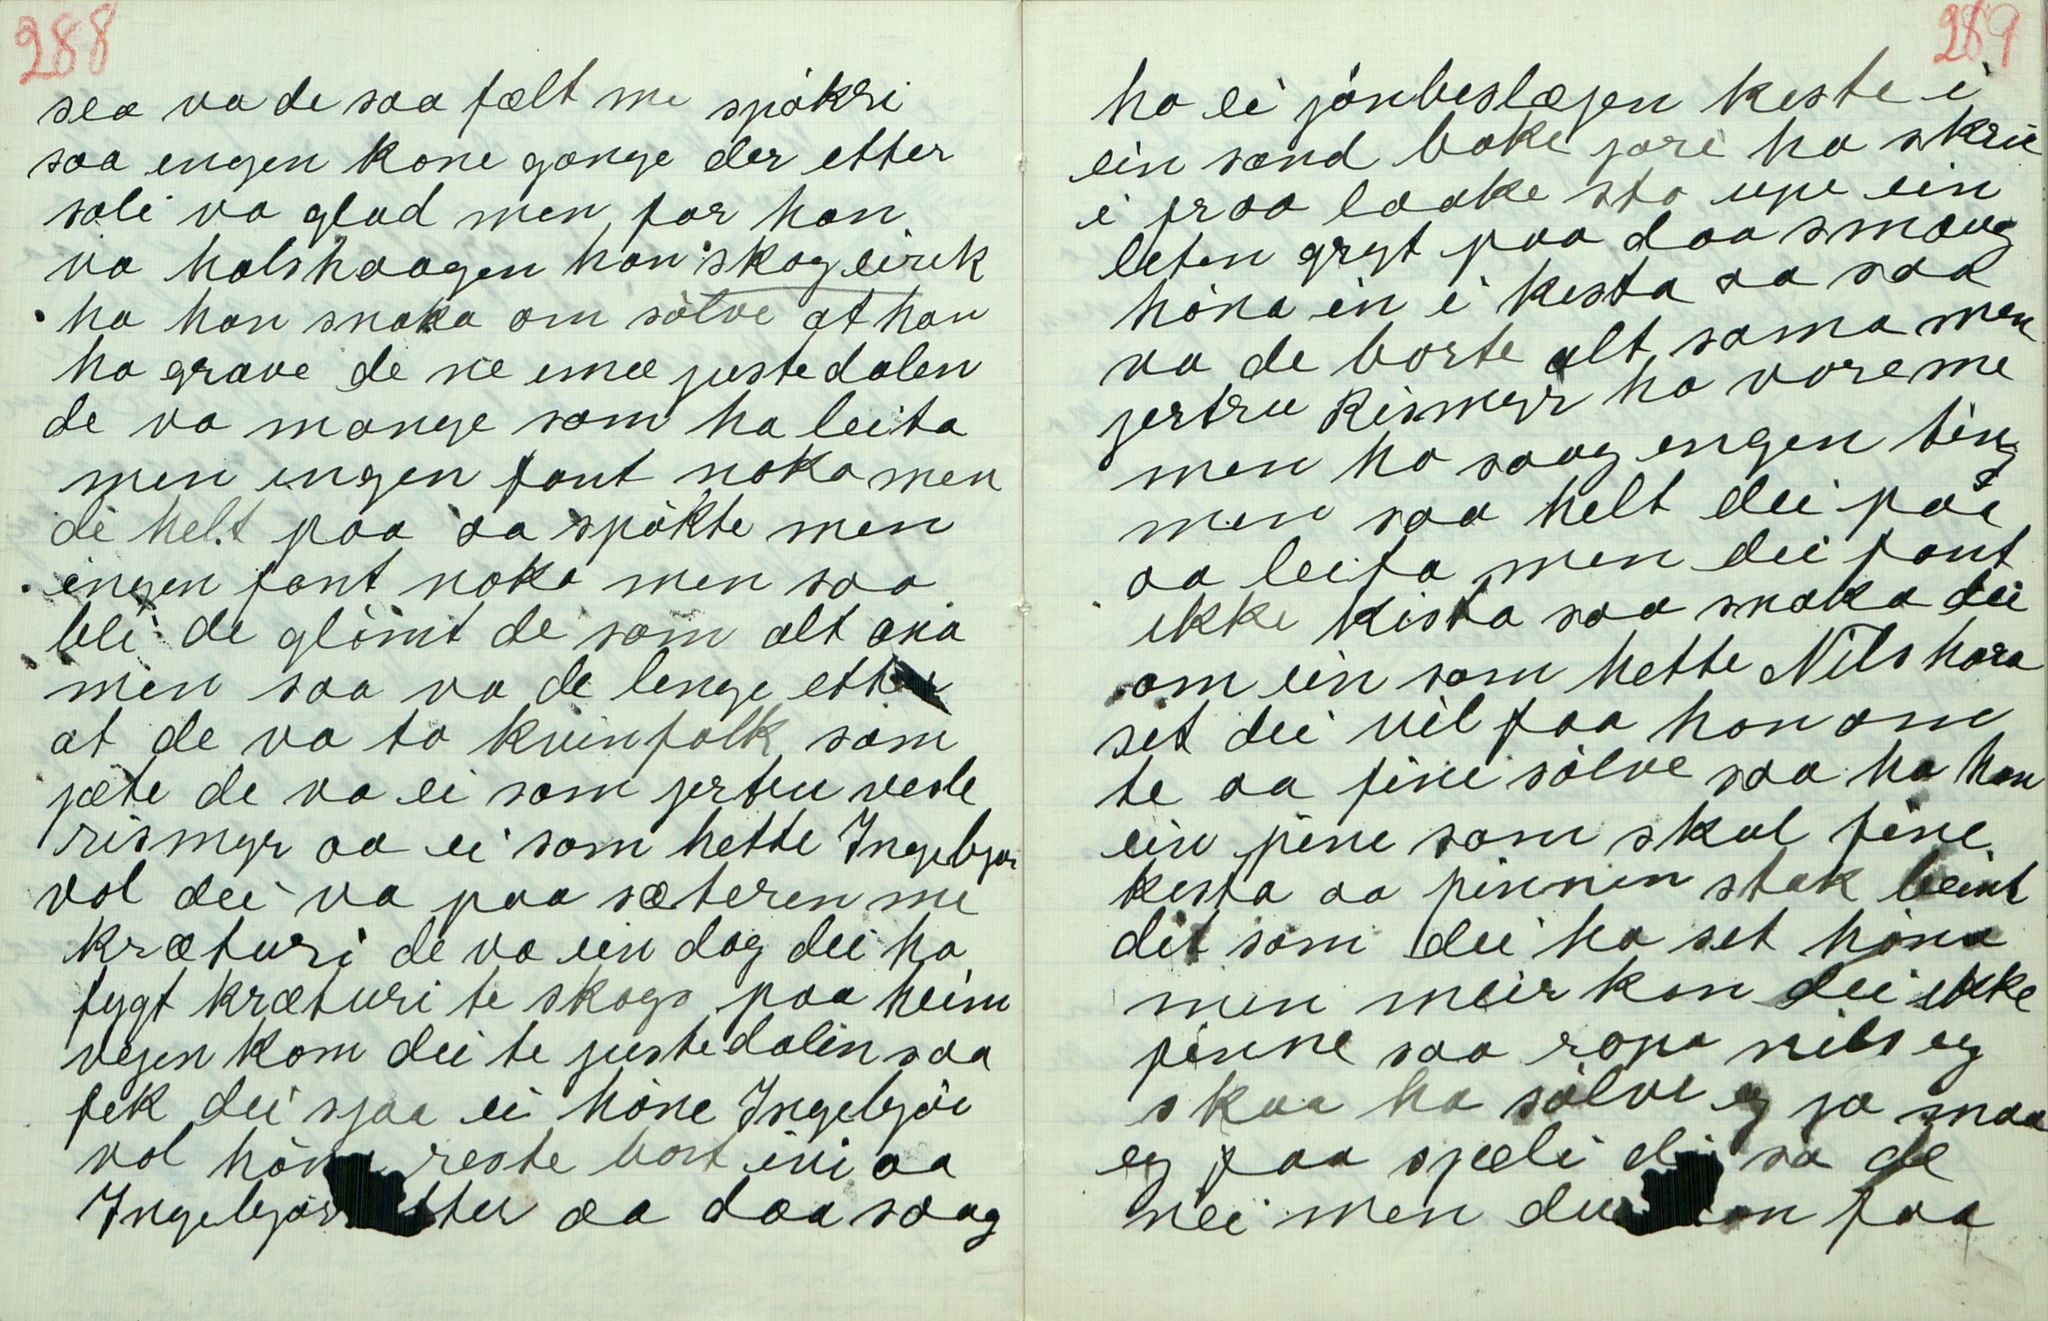 288
sea va de saa fælt me spökri
saa engen kone gange der etter
soli va glad men far han
va halshaagen han skog eirek
ha han snaka om sölve at han
ha grave de ne emæ justedalen
de va mange som ha leita
men engen fant noka men
di helt paa aa spökte men
engen fant noka men saa
blei de glömt de som alt ana
men saa va de lenge etter
at de va to kvinfolk som
jæte de va ei som jertru vesle
rismyr aa ei som hette Ingebjör
vol dei va paa sæteren me
kræturi de va ein dag dei ha
fygt kræturi te skogs paa heim
vegen kom dei te justedalin saa
fek dei sjaa ei höne Ingebjör
vol höna reste bort ini aa
Ingebjör etter aa daa saag
289
ho ei jönbeslægen keste i
ein sænd bake jore ho skrie
i fraa laake sto upe ein
leten gryt paa daa smaug
höna in i kesta aa saa
va de borte alt sama men
jertru Rismyr ha vore me
men ho saag engen ting
men saa helt dei paa
aa leita men dei fant
ikke kista saa snaka dei
om ein som hette Nils hara
set dei vil faa han om
te aa fine sölve saa ha han
ein pine som skul fine
kesta aa pinnen stak beint
dit som dei ha set höna
men meir kan dei ikke
finne saa ropa nils eg
skaa ha sölve eg ja maa
eg faa spæli di sa de
nei men du kan faa